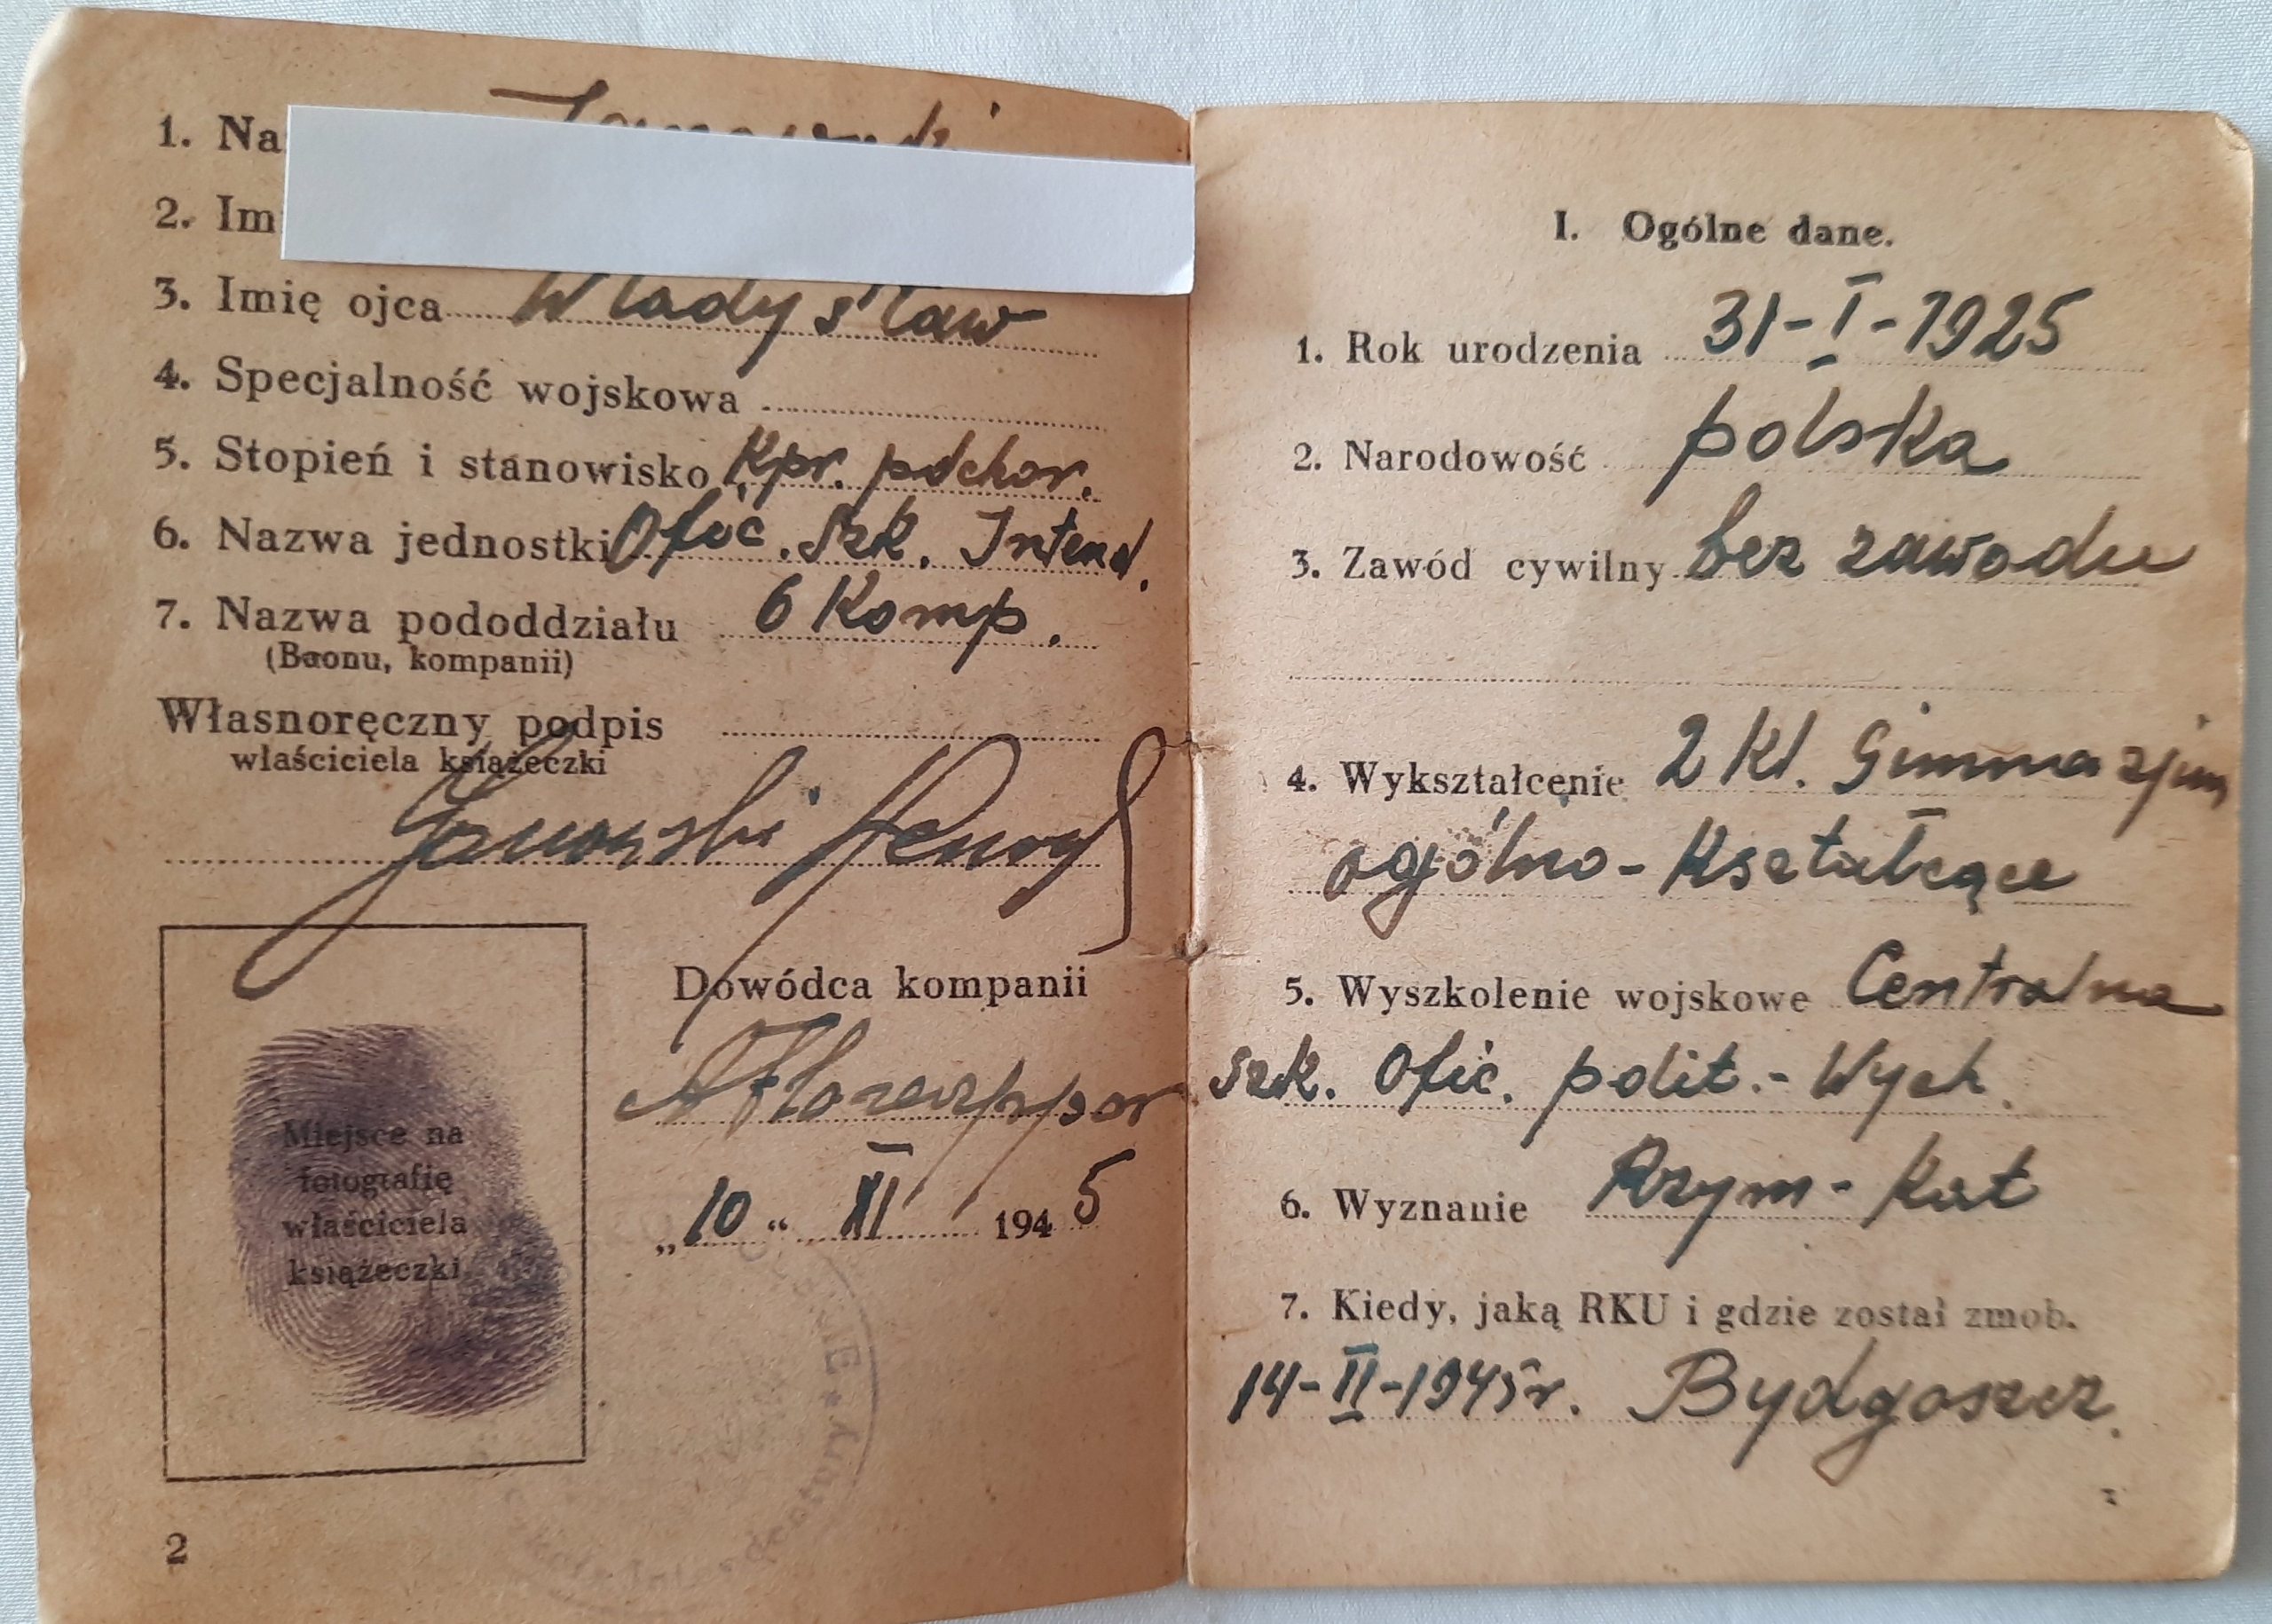 1. Na
2. Im
3. Imię ojca Władysław
4. Specjalność wojskowa
5. Stopień i stanowisko Kpr. pdchor.
6. Nazwa jednostki Ofic. Szk. Intend.
7. Nazwa pododdziału 6 Komp.
(Baonu, kompanii)
Własnoręczny podpis
właściciela książeczki
Janowski Henryk
Dowódca kompanii
ppor
„10“ XI 1945
Miejsce na
fotografię
właściciela
książeczki
2
I. Ogólne dane.
1. Rok urodzenia 31-I-1925
2. Narodowość polska
3. Zawód cywilny bez zawodu
4. Wykształcenie 2 kl. Gimnazjum
ogólno-kształcące
5. Wyszkolenie wojskowe Centralna
szk. Ofic. polit.-Wych.
6. Wyznanie Rzym-Kat
7. Kiedy, jaką RKU i gdzie został zmob.
14-II-1945r. Bydgoszcz.